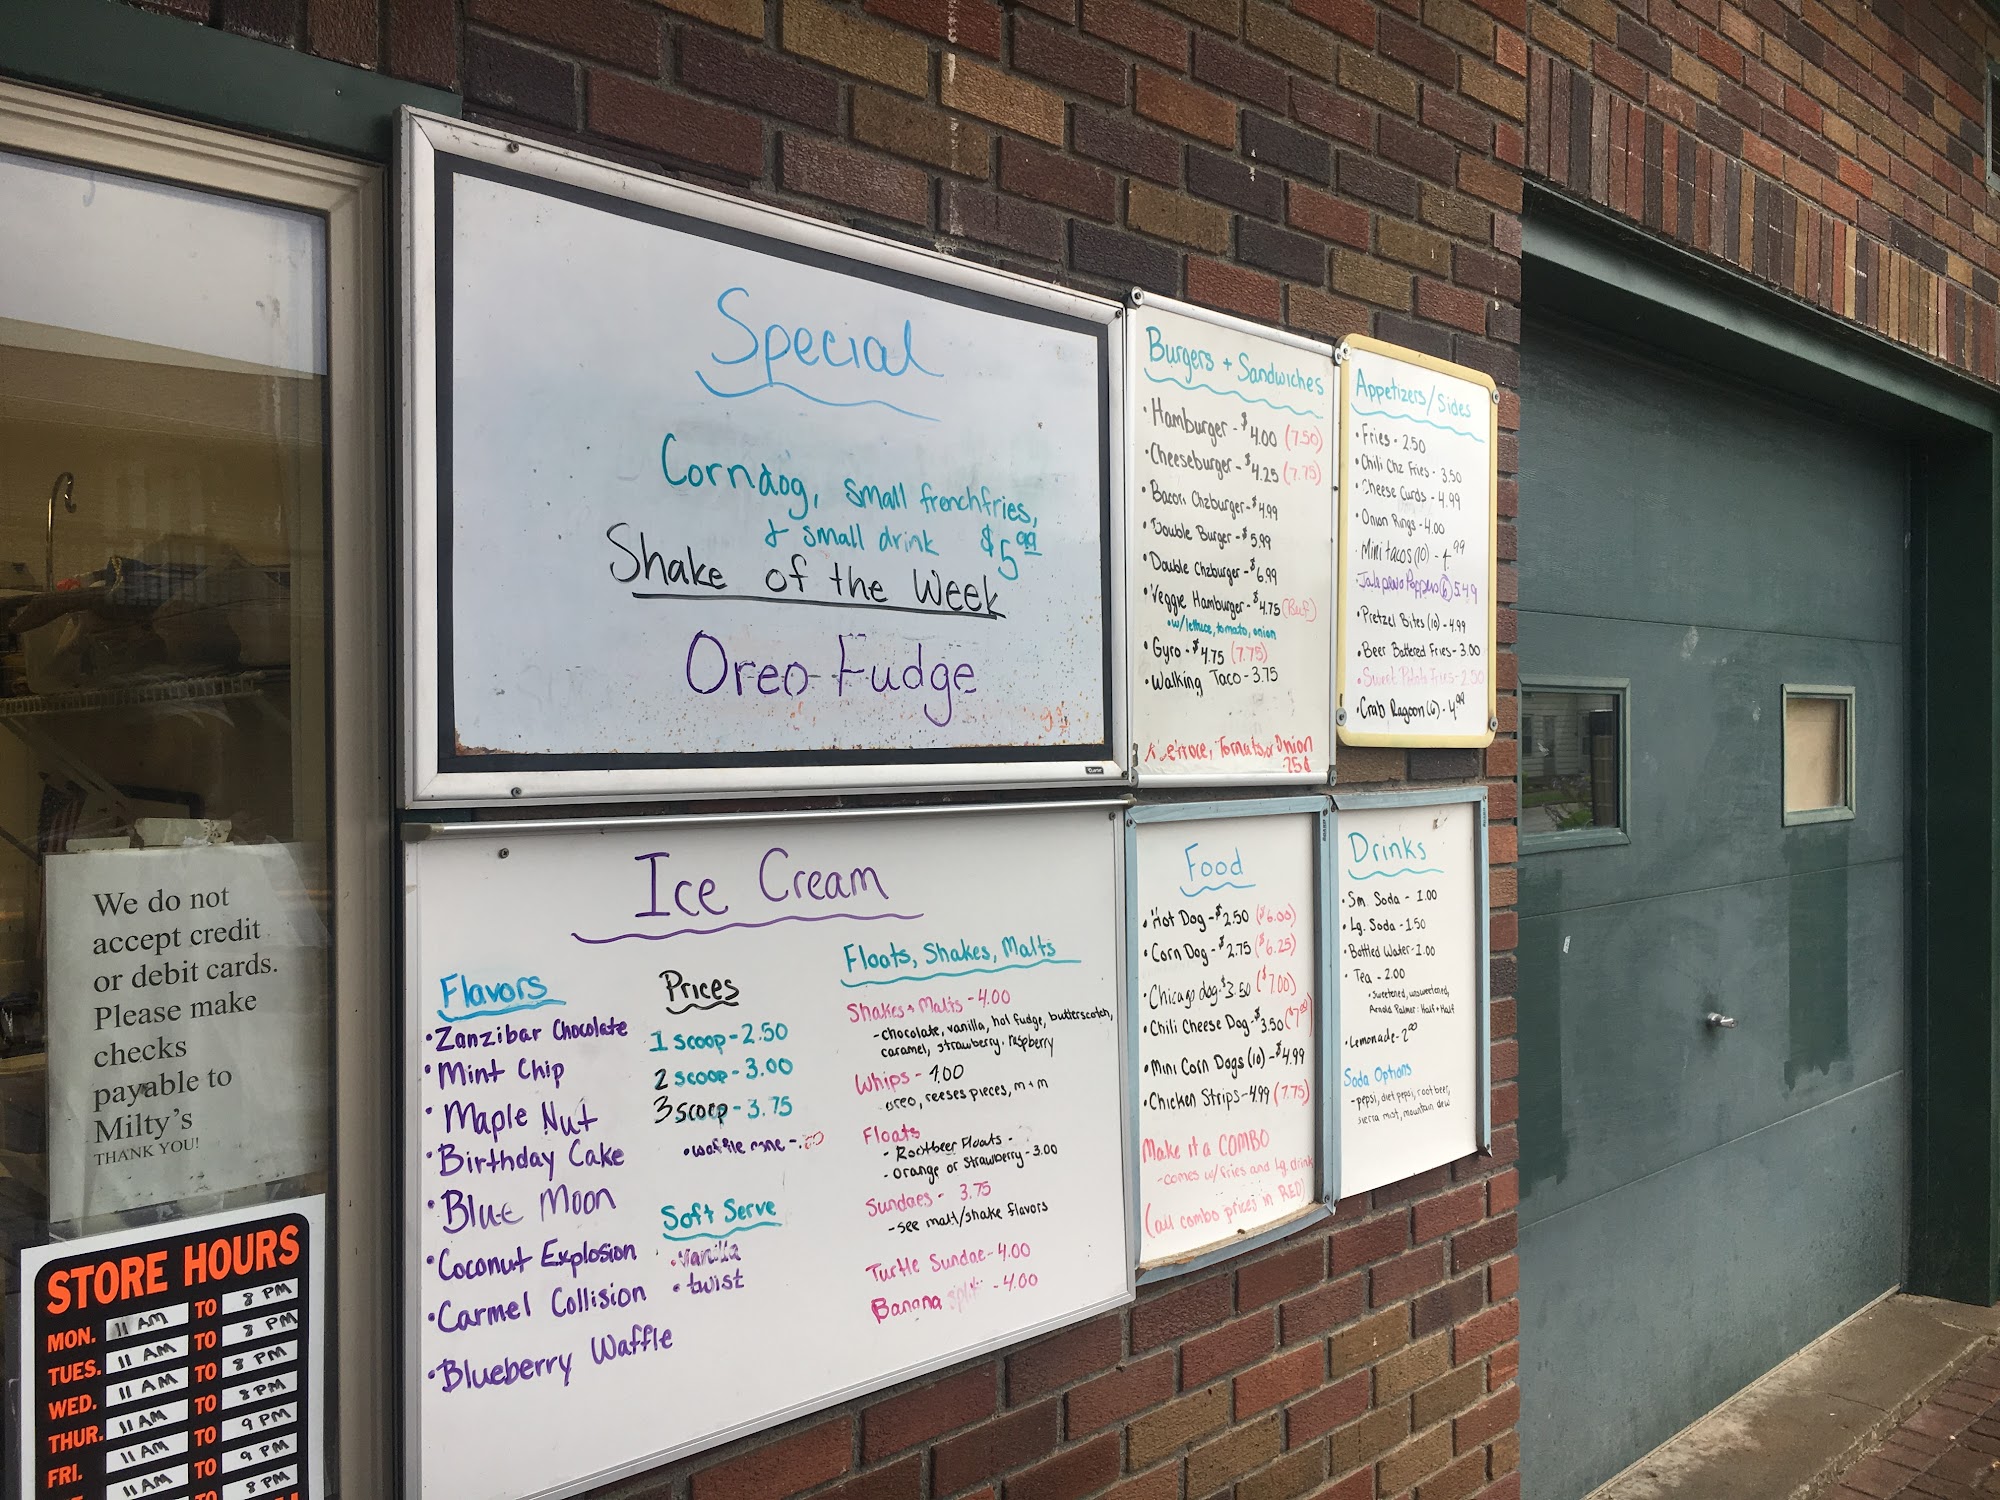 Special
Corndog, small frenchfries,
& small drink $5.99
Shake of the Week
Oreo Fudge
Burgers + Sandwiches
• Hamburger - $4.00 (7.50)
• Cheeseburger - $4.25 (7.75)
• Bacon Chzburger - $4.99
• Double Burger - $5.99
• Double Chzburger - $6.99
• Veggie Hamburger - $4.75
• w/lettuce, tomato, onion
• Gyro - $4.75 (7.75)
• Walking Taco - 3.75
Tomato, or Onion
.75¢
Appetizers/Sides
• Fries - 2.50
• Chili Chz Fries - 3.50
• Cheese Curds - 4.99
• Onion Rings - 4.00
• Mini tacos (10) - 4.99
• Jalapeno Poppers (6) 5.49
• Pretzel Bites (10) - 4.99
• Beer Battered Fries - 3.00
• Sweet Potato Fries - 2.50
• Crab Ragoon (6) - 4.99
Ice Cream
Flavors
• Zanzibar Chocolate
• Mint Chip
• Maple Nut
• Birthday Cake
• Blue Moon
• Coconut Explosion
• Carmel Collision
• Blueberry Waffle
Prices
1 scoop - 2.50
2 scoop - 3.00
3 scoop - 3.75
• waffle
Soft Serve
• vanilla
• twist
Floats, Shakes, Malts
Shakes + Malts - 4.00
- chocolate, vanilla, hot fudge, butterscotch,
caramel, strawberry, raspberry
Whips - 4.00
oreo, reeses pieces, m+m
Floats
- Rootbeer Floats -
- Orange or Strawberry - 3.00
Sundaes - 3.75
- see malt/shake flavors
Turtle Sundae - 4.00
Banana split - 4.00
Food
• Hot Dog - $2.50 ($6.00)
• Corn Dog - $2.75 ($6.25)
• Chicago dog - $3.50 ($7.00)
• Chili Cheese Dog - $3.50 ($7.00)
• Mini Corn Dogs (10) - $4.99
• Chicken Strips - 4.99 (7.75)
Make it a COMBO
- comes w/fries and Lg. drink
(all combo prices in RED)
Drinks
• Sm. Soda - 1.00
• Lg. Soda - 1.50
• Bottled Water - 1.00
• Tea - 2.00
• Sweetened, unsweetened,
Arnold Palmer: Half + Half
• Lemonade - 2.00
Soda Options
- pepsi, diet pepsi, root beer,
sierra mist, mountain dew
We do not
accept credit
or debit cards.
Please make
checks
payable to
Milty's
THANK YOU!
STORE HOURS
MON. 11 AM TO 8 PM
TUES. 11 AM TO 8 PM
WED. 11 AM TO 8 PM
THUR. 11 AM TO 8 PM
FRI. 11 AM TO 9 PM
11 AM TO 9 PM
TO 8 PM